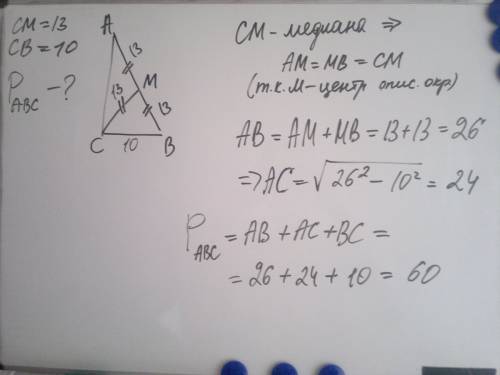 CM = 13
CB = 10
P ABC - ?
A
13
M
13
13
C
10
B
CM - медиана ⇒
AM = MB = CM
(т.к. M - центр опис. окр)
AB = AM + MB = 13 + 13 = 26
⇒ AC = √26² - 10² = 24
P ABC = AB + AC + BC =
= 26 + 24 + 10 = 60